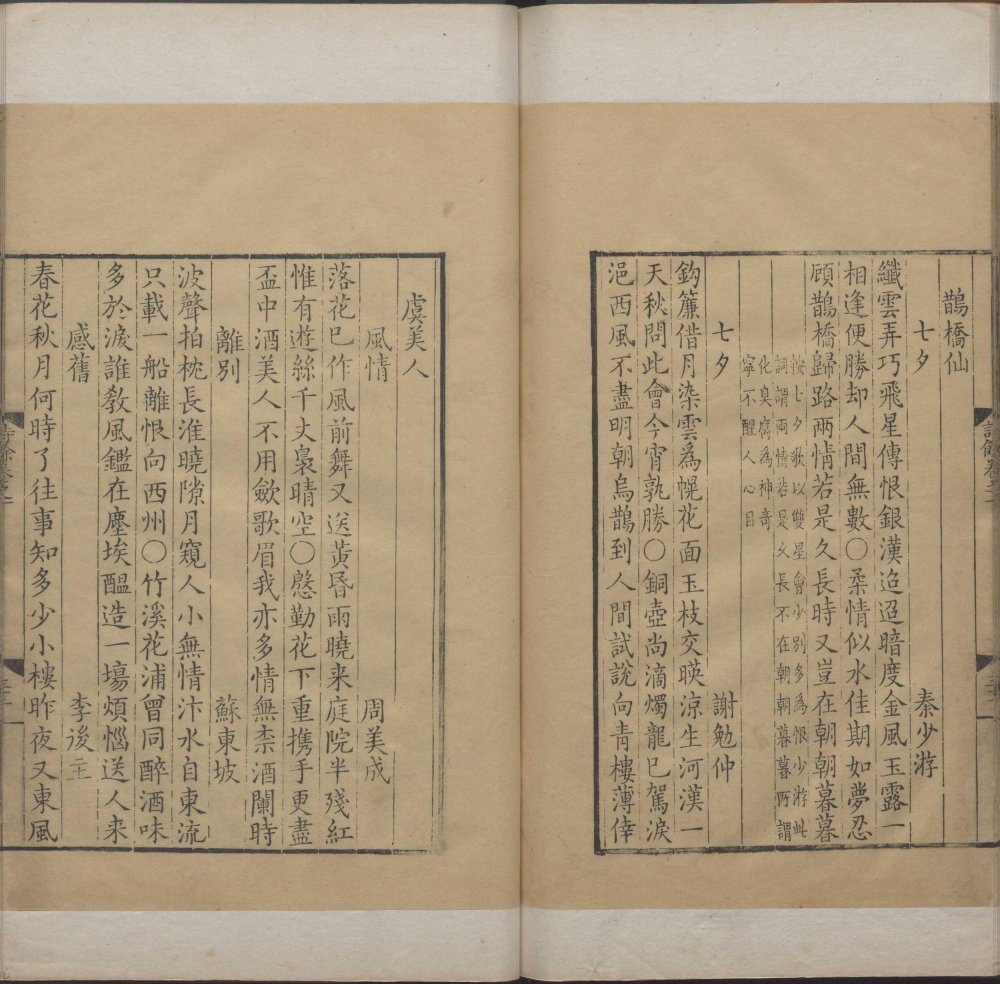 鵲橋仙
七夕 秦少游
纖雲弄巧飛星傳恨銀漢迢迢暗度金風玉露一
相逢便勝却人間無數〇柔情似水佳期如夢忍
顧鵲橋歸路兩情若是久長時又豈在朝朝暮暮
按七夕歌以雙星會少別多為恨少游此
詞謂兩情若是久長不在朝朝暮暮所謂
化臭腐爲神奇
寧不醒人心目
七夕 謝勉仲
鈎簾借月染雲爲幌花面玉枝交暎涼生河漢一
天秋問此會今宵孰勝〇銅壺尚滴燭龍巳駕淚
浥西風不盡明朝烏鵲到人間試說向青樓薄倖
虞美人
風情 周美成
落花巳作風前舞又送黄昏雨曉来庭院半殘紅
惟有遊絲千丈裊晴空〇慇勤花下重携手更盡
盃中酒美人不用歛歌眉我亦多情無柰酒闌時
離別 蘇東坡
波聲拍枕長淮曉隙月窺人小無情汴水自東流
只載一船離恨向西州〇竹溪花浦曾同醉酒味
多於淚誰教風鑑在塵埃醖造一塲煩惱送人来
感舊 李後主
春花秋月何時了往事知多少小樓昨夜又東風